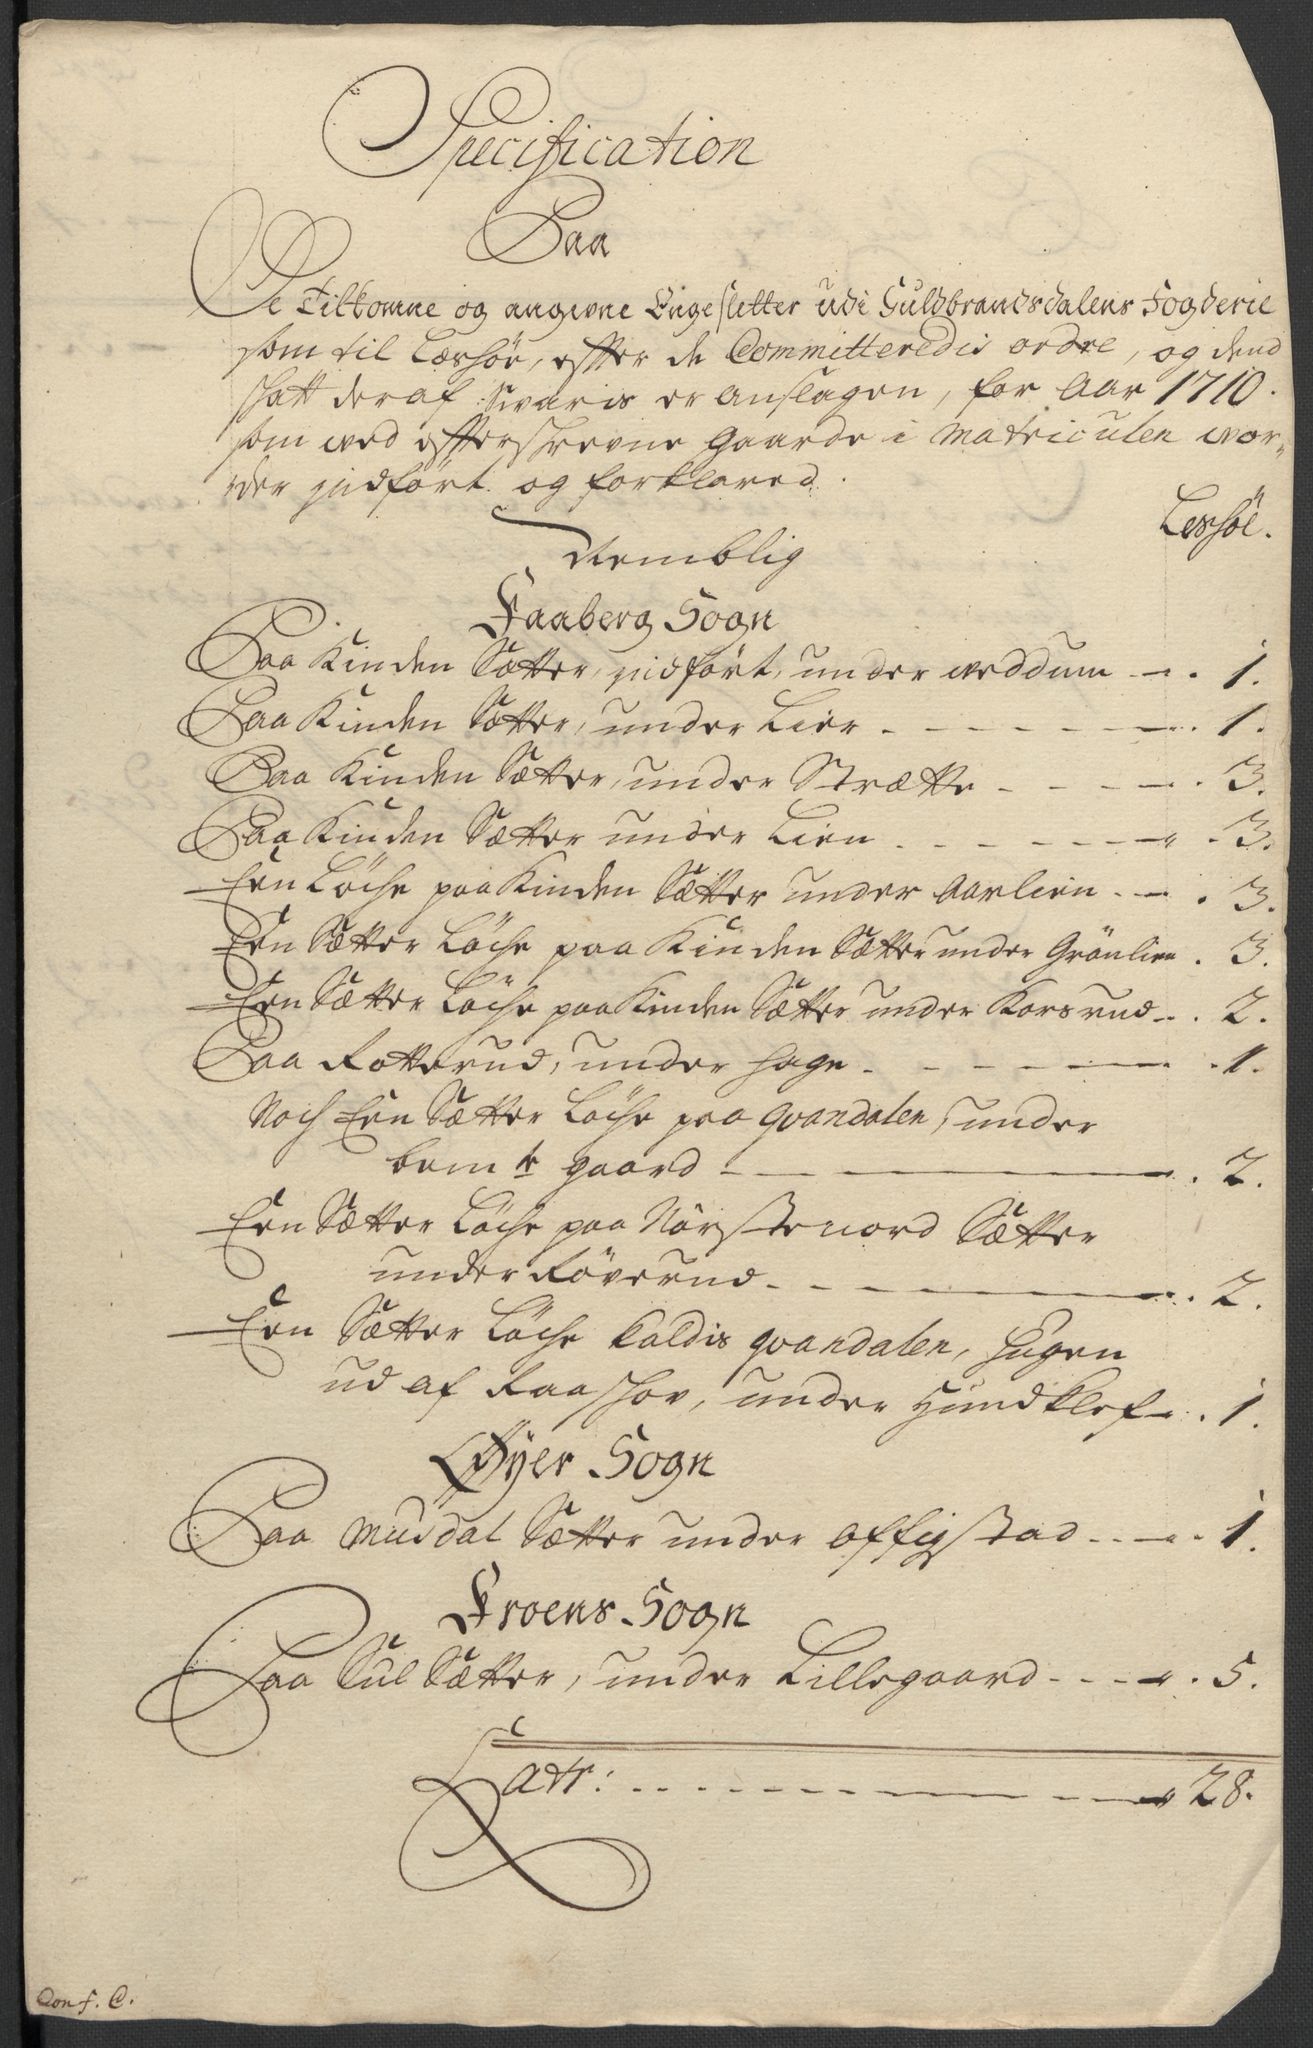 Specification
Paa
De Tilkomne og angivne Engesletter udi Guldbrandsdalens Fogderie
som til Læshøe, effter de Committeredis ordre, og dend
schatt deraf Svaris er anslagen, for Aar 1710.
som wed effterschrevne gaarde i Matriculen wor-
der jndført og forklared.
Leshøe.
Nemblig
Faaberg Sogn
Paa Kinden Sætter, jndført, under weddum - - . 1.
Paa Kinden Sætter, under Lier . - - - - - - . 1.
Paa Kinden Sætter, under Strætte - - - - - . 3.
Paa Kinden Sætter under Lien . - - - - - . 3.
Een Løche paa Kinden Sætter under Aarlien . - . 3.
Een Sætter Løche paa Kinden Sætter under Grønlien . 3.
Een Sætter Løche paa Kinden Sætter under Korsrud - . 2.
Paa Rotterud, under Hage . - - - - - . 1.
Noch Een Sætter Løche paa Qvandalen, under
bemte gaard - - - - - . 2.
Een Sætter Løche paa Nørstenord Sætter
under Røverud - - - - . 2.
Een Sætter Løche Kaldis Qvandalen, Hagen
ud af Raaschov, under Hundklef - . 1.
Øyer Sogn
Paa Musdal Sætter under Offigstad - - - . 1.
Froens Sogn
Paa Sul Sætter, under Lillegaard - - - . 5.
Latr: - - - - - - - 28.
Conf. C.